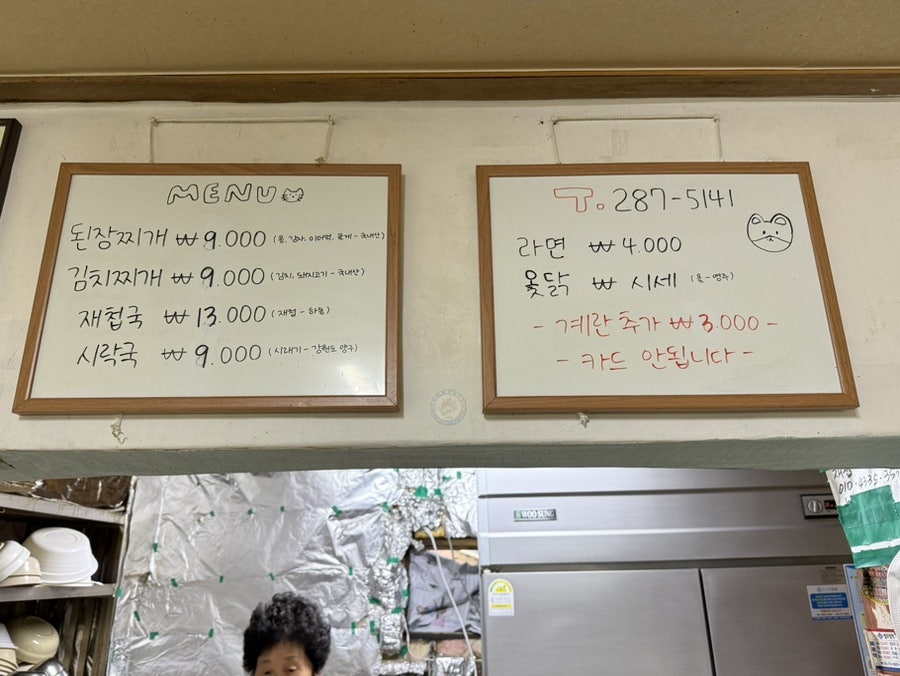 MENU
된장찌개 ₩ 9.000 (콩, 감자, 미더덕, 꽃게 - 국내산)
김치찌개 ₩ 9.000 (김치, 돼지고기 - 국내산)
재첩국 ₩ 13.000 (재첩 - 하동)
시락국 ₩ 9.000 (시래기 - 강원도 양구)
T. 287-5141
라면 ₩ 4.000
옻닭 ₩ 시세 (옻 - 영주)
- 계란 추가 ₩ 3.000 -
- 카드 안됩니다 -
WOOSUNG
재첩